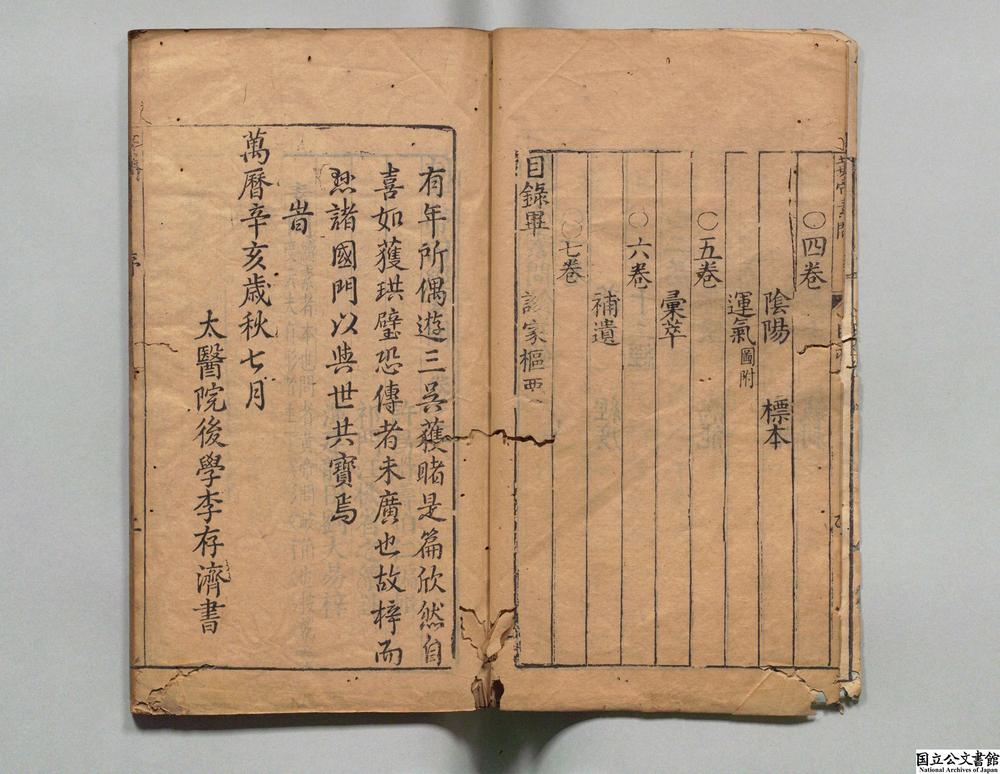 〇四卷
陰陽 標本
運氣圖附
〇五卷
彙萃
〇六卷
補遺
〇七卷
診家樞要
目錄畢
有年所偶遊三吳獲睹是篇欣然自
喜如獲珙璧恐傳者未廣也故梓而
懸諸國門以與世共寶焉
旹
萬曆辛亥歲秋七月
太醫院後學李存濟書
国立公文書館
National Archives of Japan